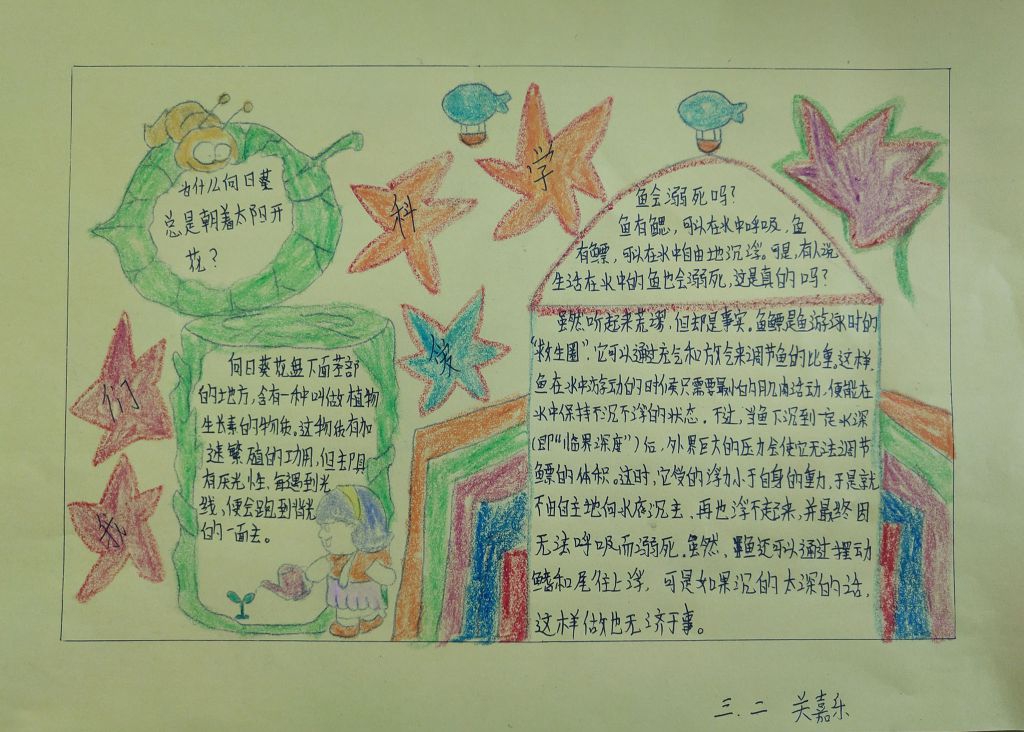 我
们
侯
科
学
为什么向日葵
总是朝着太阳开
花？
向日葵花盘下面茎部
的地方，含有一种叫做植物
生长素的物质。这物质有加
速繁殖的功用，但却具
有灰光性，每遇到光
线，便会跑到背光
的一面去。
鱼会溺死吗？
鱼有鳃，可以在水中呼吸，鱼
有鳔，可以在水中自由地沉浮。可是，有人说
生活在水中的鱼也会溺死，这是真的吗？
虽然听起来荒谬，但却是事实。鱼鳔是鱼游泳时的
“救生圈”，它可以通过充气和放气来调节鱼的比重。这样
鱼在水中游动的时候只需要最小的肌肉活动，便能在
水中保持不沉不浮的状态。不过，当鱼下沉到一定水深
（即“临界深度”）后，外界巨大的压力会使它无法调节
鳔的体积。这时，它受的浮力小于自身的重力，于是就
不由自主地向水底沉去，再也浮不起来，并最终因
无法呼吸而溺死。虽然，鱼还可以通过摆动
鳍和尾往上浮，可是如果沉的太深的话，
这样做也无济于事。
三.二 关嘉乐